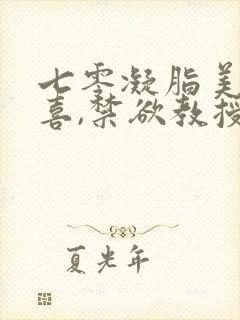 七零凝脂美
喜,禁欲教授
夏光年